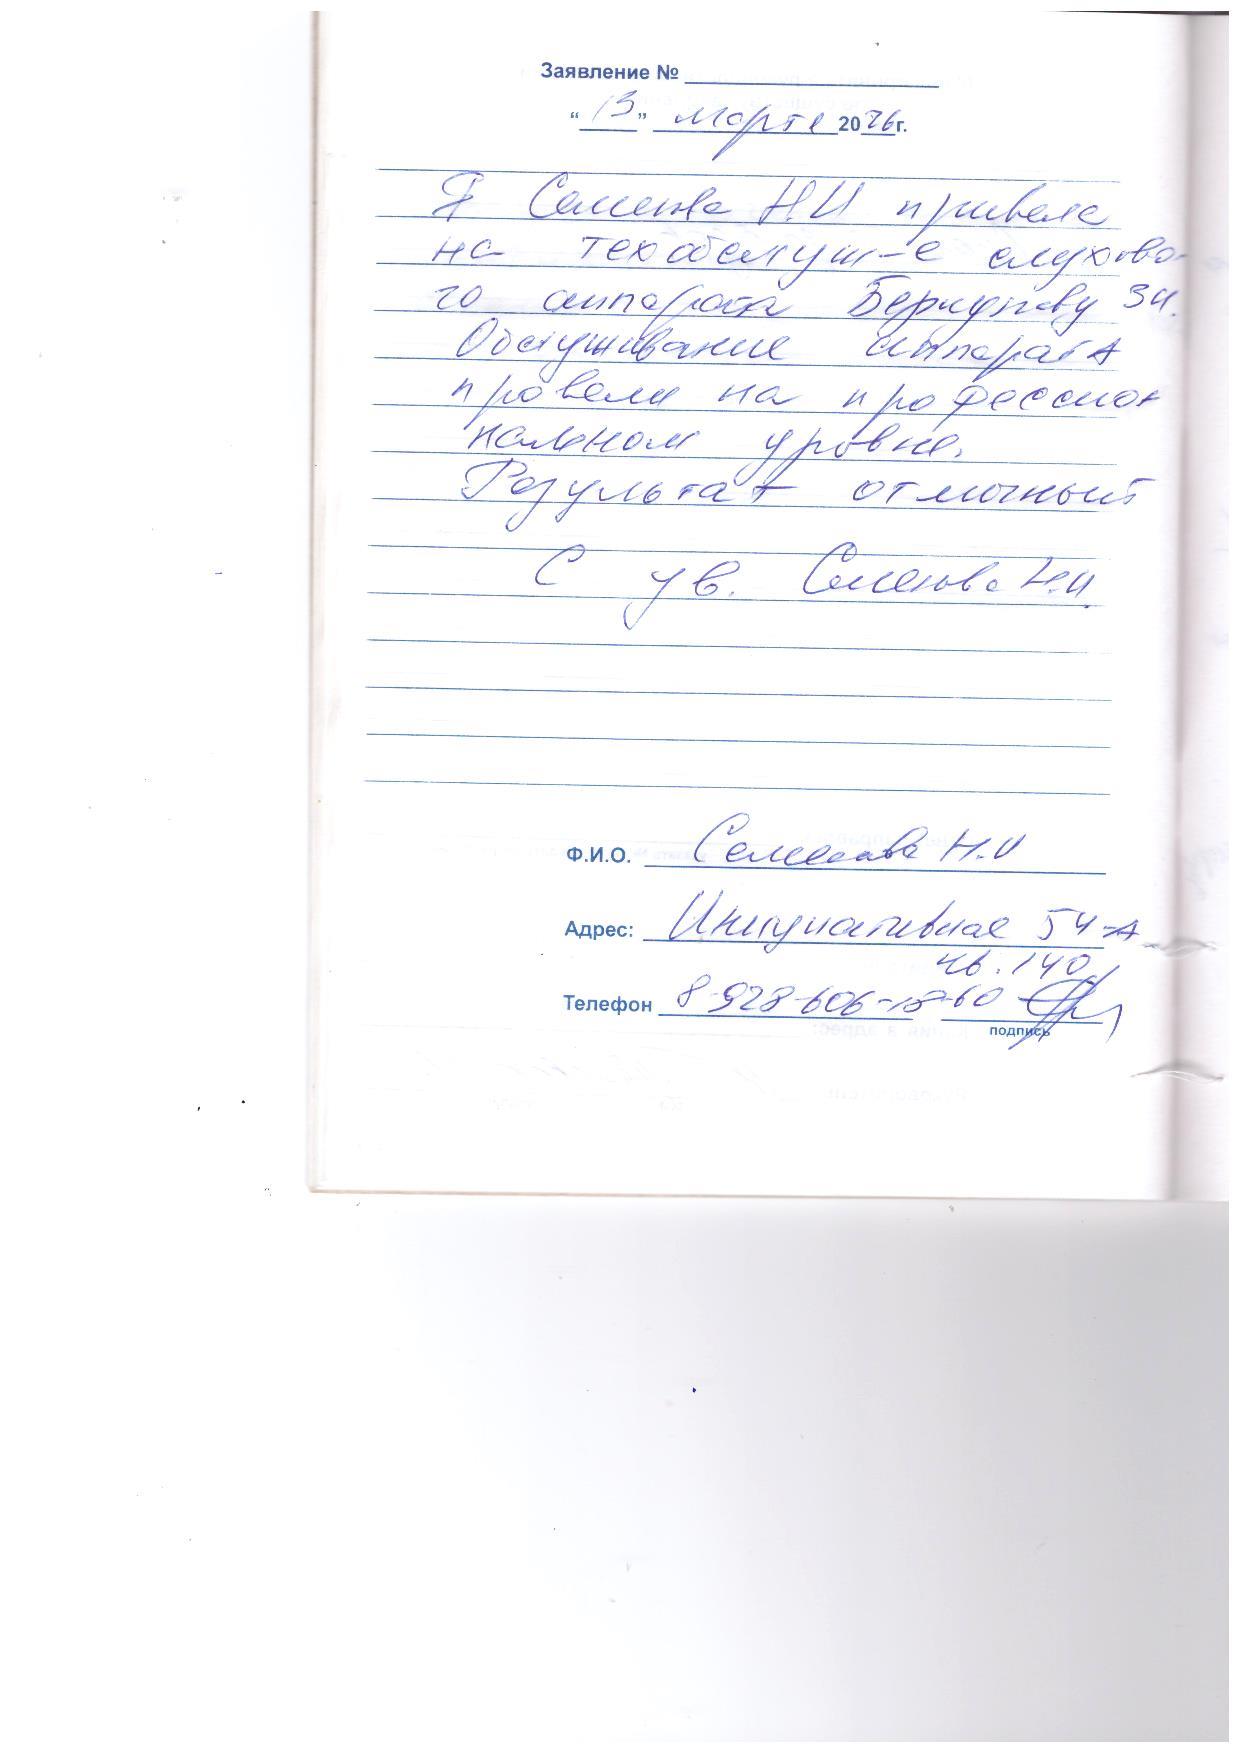 Заявление №
"13" марта 2026г.
Я Семенова Н.И привела
на техобслуж-е слухово-
го аппарата 3И.
Обслуживание аппарата
провели на професион
нальном уровне.
Результат отличный
С ув. Семенова Н.И.
Ф.И.О. Семенова Н.И
Адрес: Инициативная 54-А
кв. 140
Телефон 8-928-606-18-60
подпись